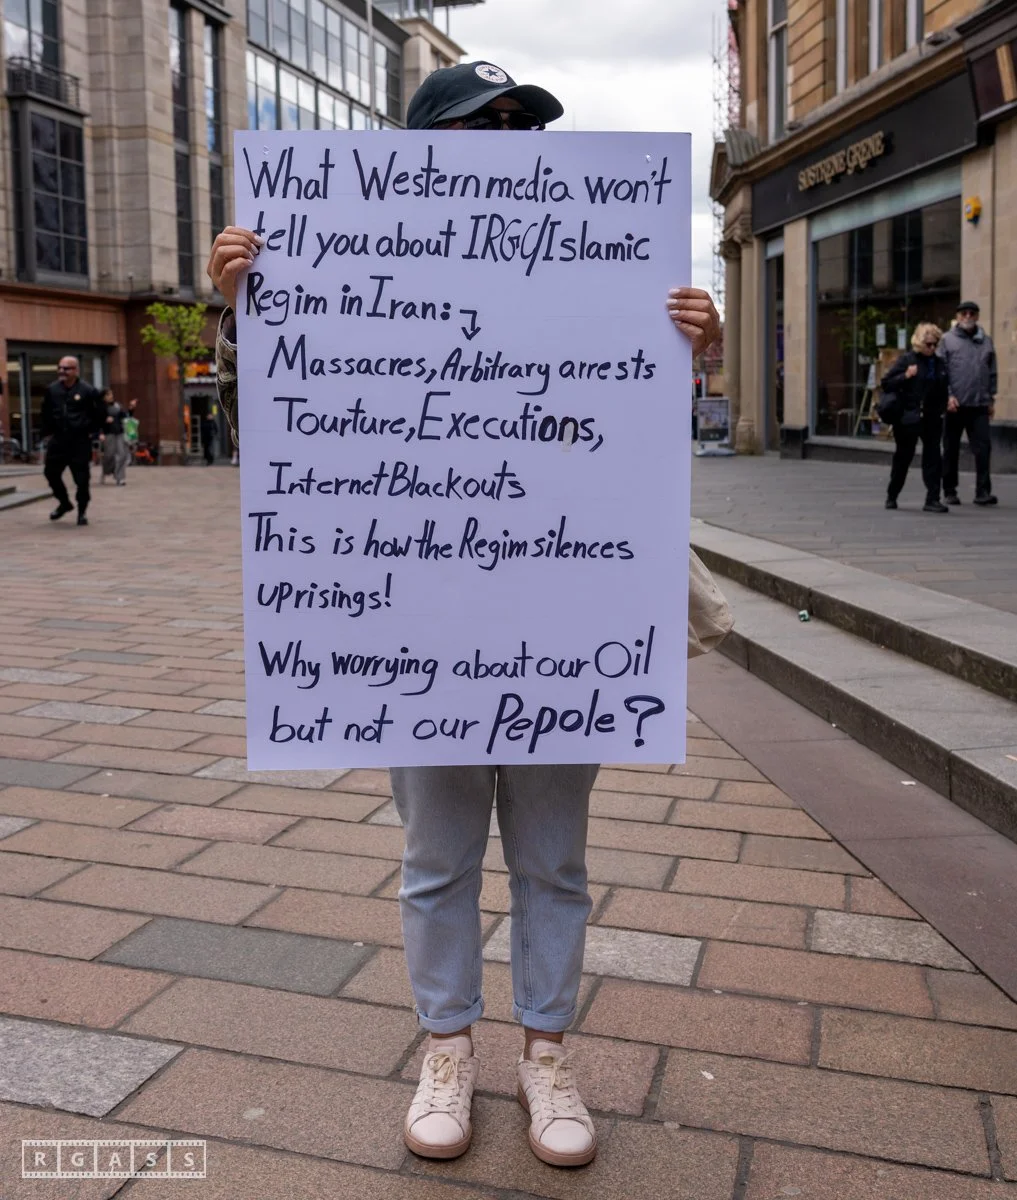 What Western media won't
tell you about IRGC/Islamic
Regim in Iran:
Massacres, Arbitrary arrests
Tourture, Executions,
Internet Blackouts
This is how the Regim silences
uprisings!
Why worrying about our Oil
but not our Pepole?
SØSTRENE GRENE
RGASS